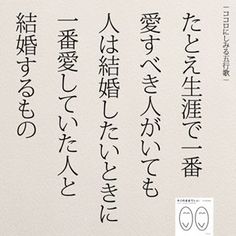 |ココロにしみる五行歌|
たとえ生涯で一番
愛すべき人がいても
人は結婚したいときに
一番愛していた人と
結婚するもの